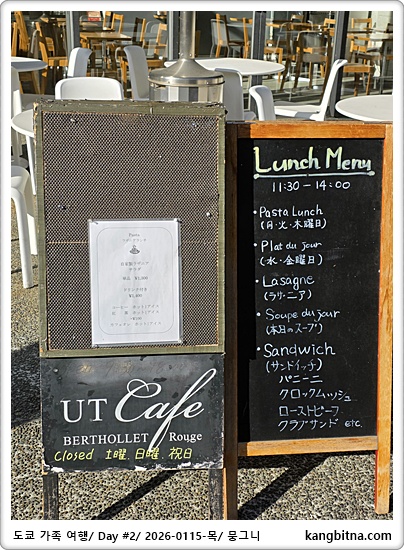 Pasta
¥1,000
¥1,400
UT Cafe
BERTHOLLET Rouge
Closed 土曜.日曜.祝日
Lunch Menu
11:30-14:00
・Pasta Lunch
(月・火・木曜日)
・Plat du jour
(水・金曜日)
・Lasagne
(ラザニア)
・Soupe du jour
(本日のスープ)
・Sandwich
(サンドイッチ)
パニーニ
クロックムッシュ
ローストビーフ
クラブサンド etc.
도쿄 가족 여행/ Day #2/ 2026-0115-목/ 뭉그니
kangbitna.com